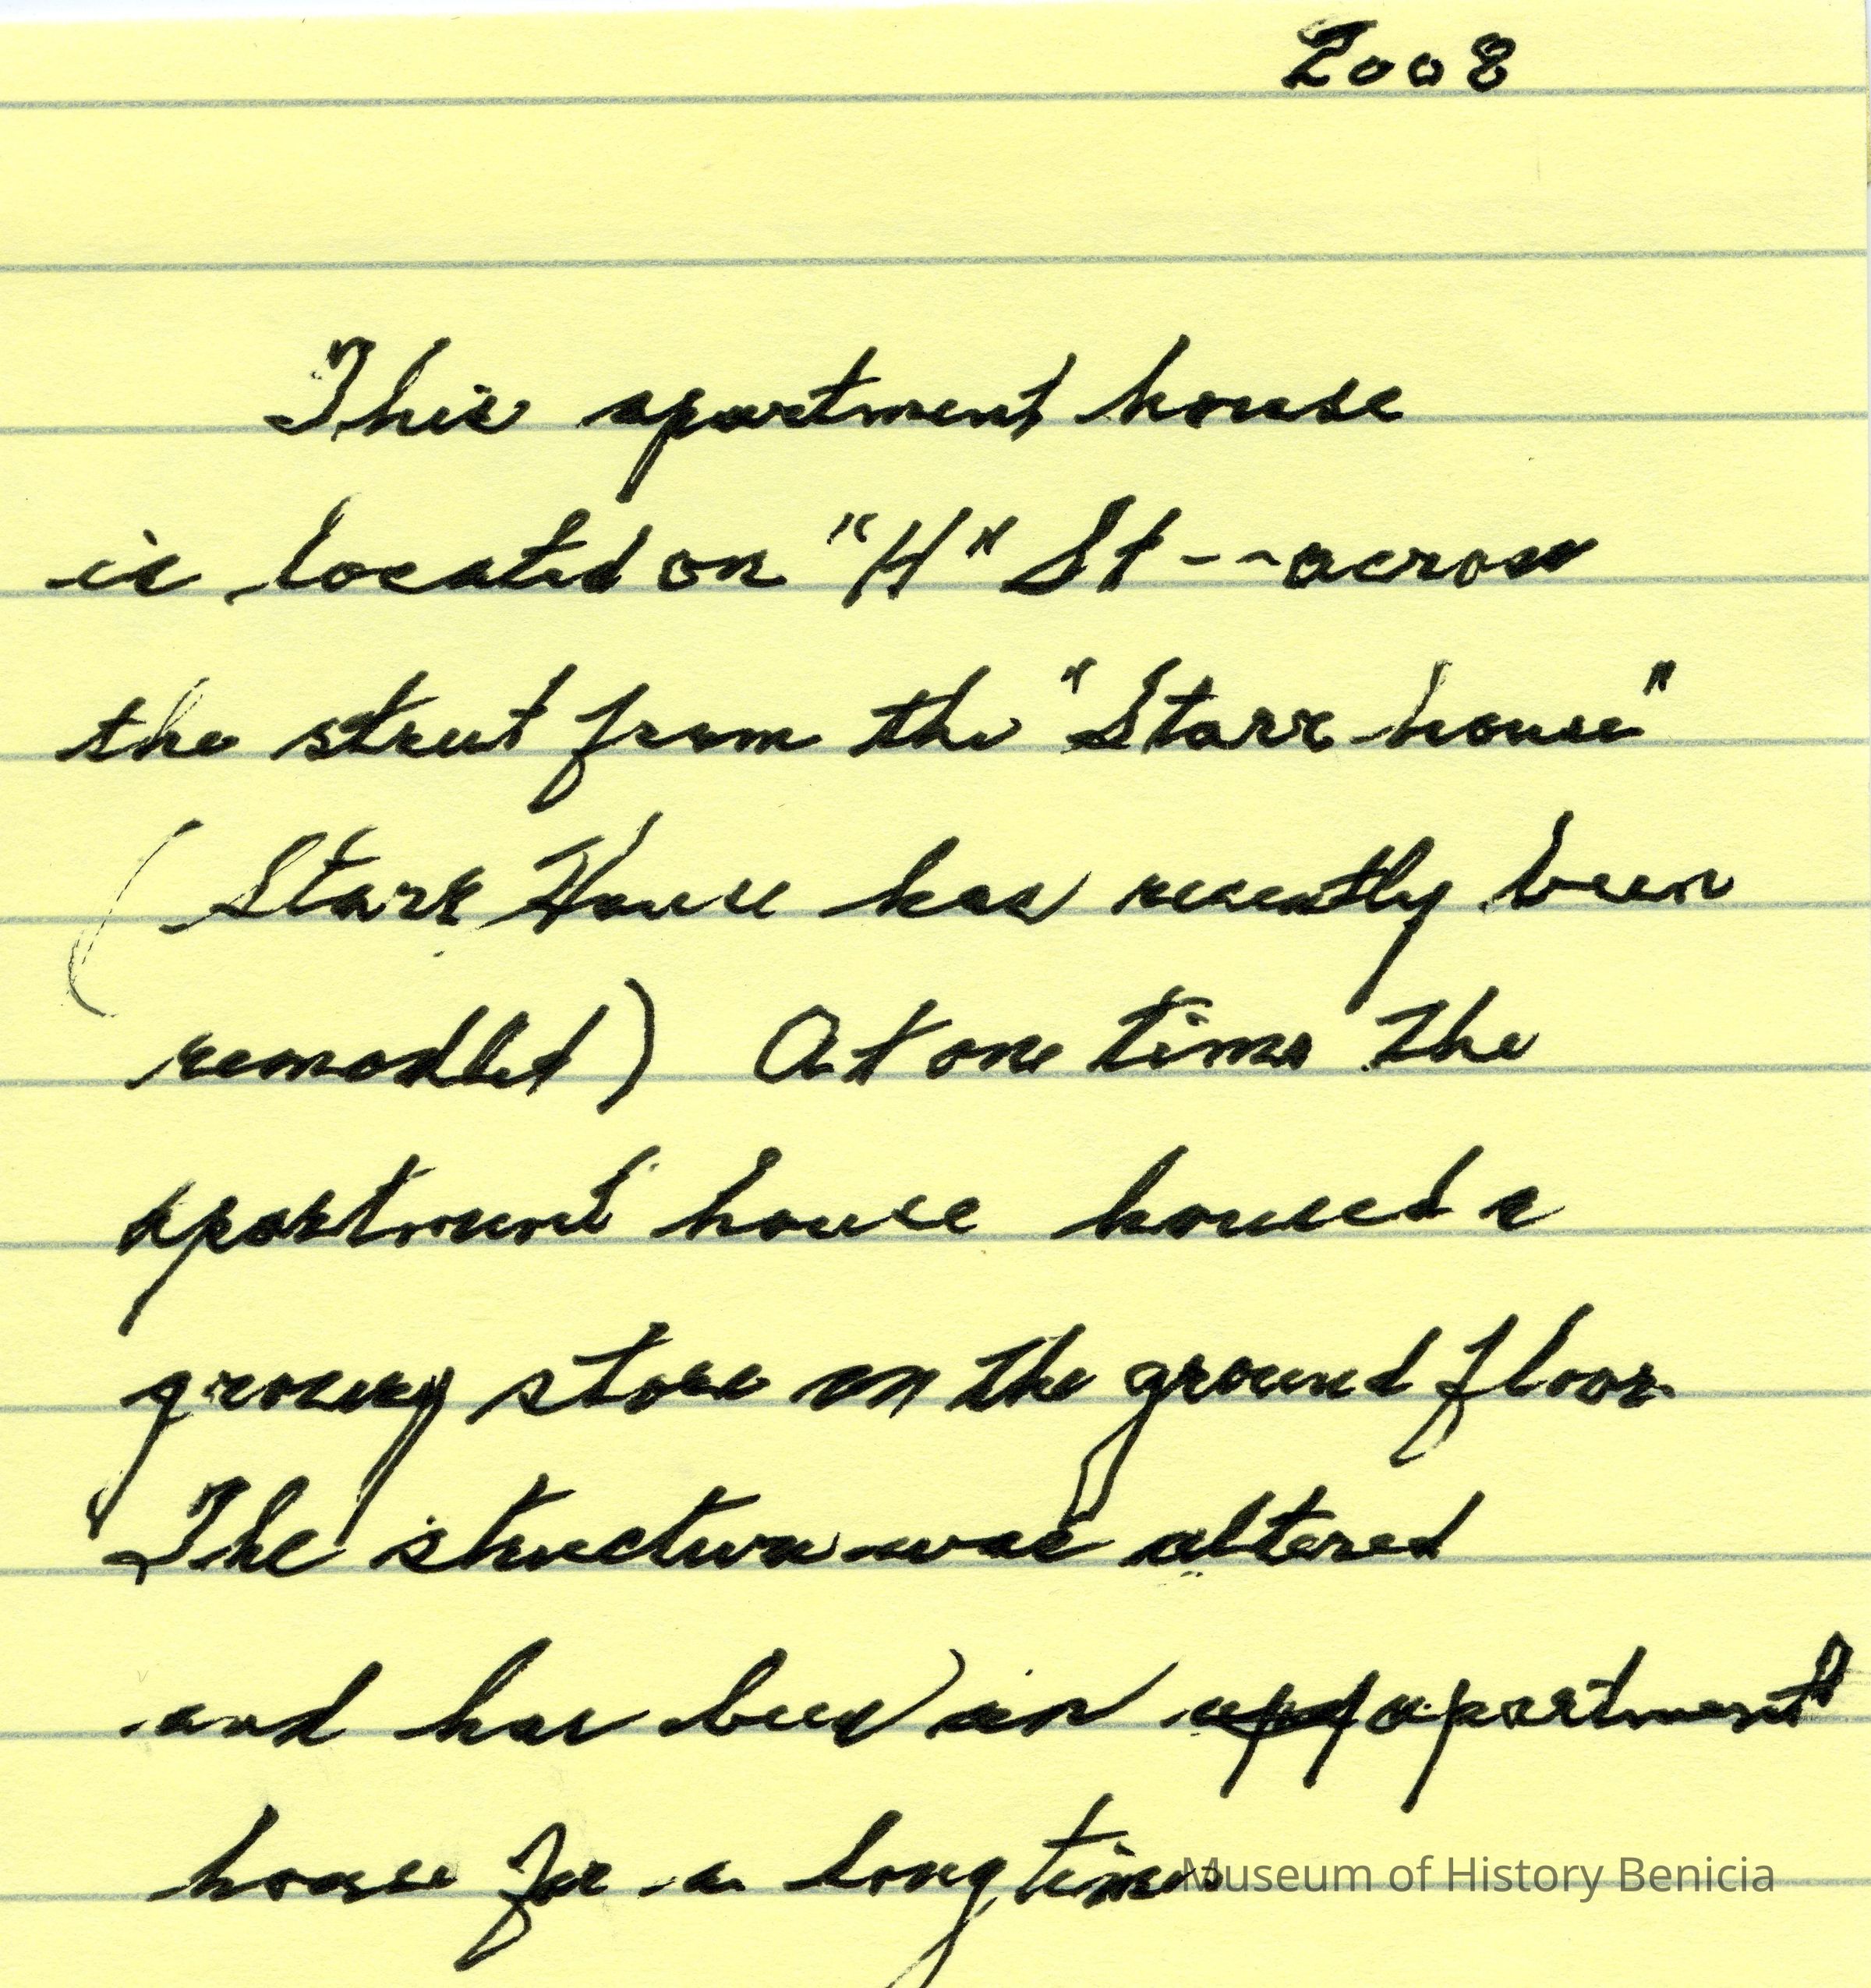 2008
This apartment house
is located on "H" St -- across
the street from the "Starr house"
(Starr House has recently been
remodled) At one time the
apartment house housed a
grocery store on the ground floor.
The structure was altered
and has been an apartment
house for a long time
Museum of History Benicia